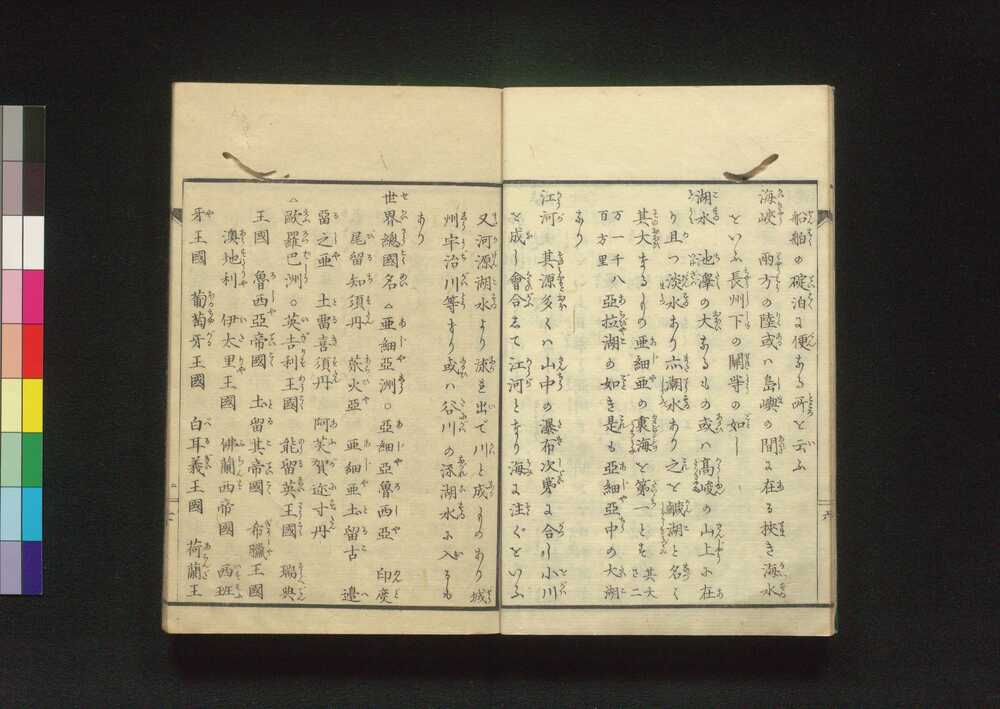 船舶の碇泊に便なる所を云ふ
海峽 兩方の陸或ハ島嶼の間に在る挾き海水
をいふ長州下の關等の如し
湖水 池澤の大なるもの或ハ高峻の山上に在
り且つ淡水あり亦潮水あり之を鹹湖と名く
其大なるもの亜細亜の裏海を第一とも其大さ二
万一千八亞拉湖の如き是も亞細亞中の大湖
百方里
なり
江河 其源多くハ山中の瀑布次第に合し小川
を成し會合して江河となり海に注ぐをいふ
又河源湖水より流を出で川と成ものあり城
州宇治川等なり或ハ谷川の深湖水に入るも
あり
世界總國名△亜細亞洲。亞細亞魯西亞 印度
尾留知須丹 萊火亞 亜細亜土留古 邉
留之亜 土雷喜須丹 阿芙賀迩寸丹
△歐羅巴洲。英吉利王國 能留英王國 瑞典
王國 魯西亞帝國 土留其帝國 希臘王國
澳地利 伊太里王國 佛蘭西帝國 西班
牙王國 葡萄牙王國 白耳義王國 荷蘭王